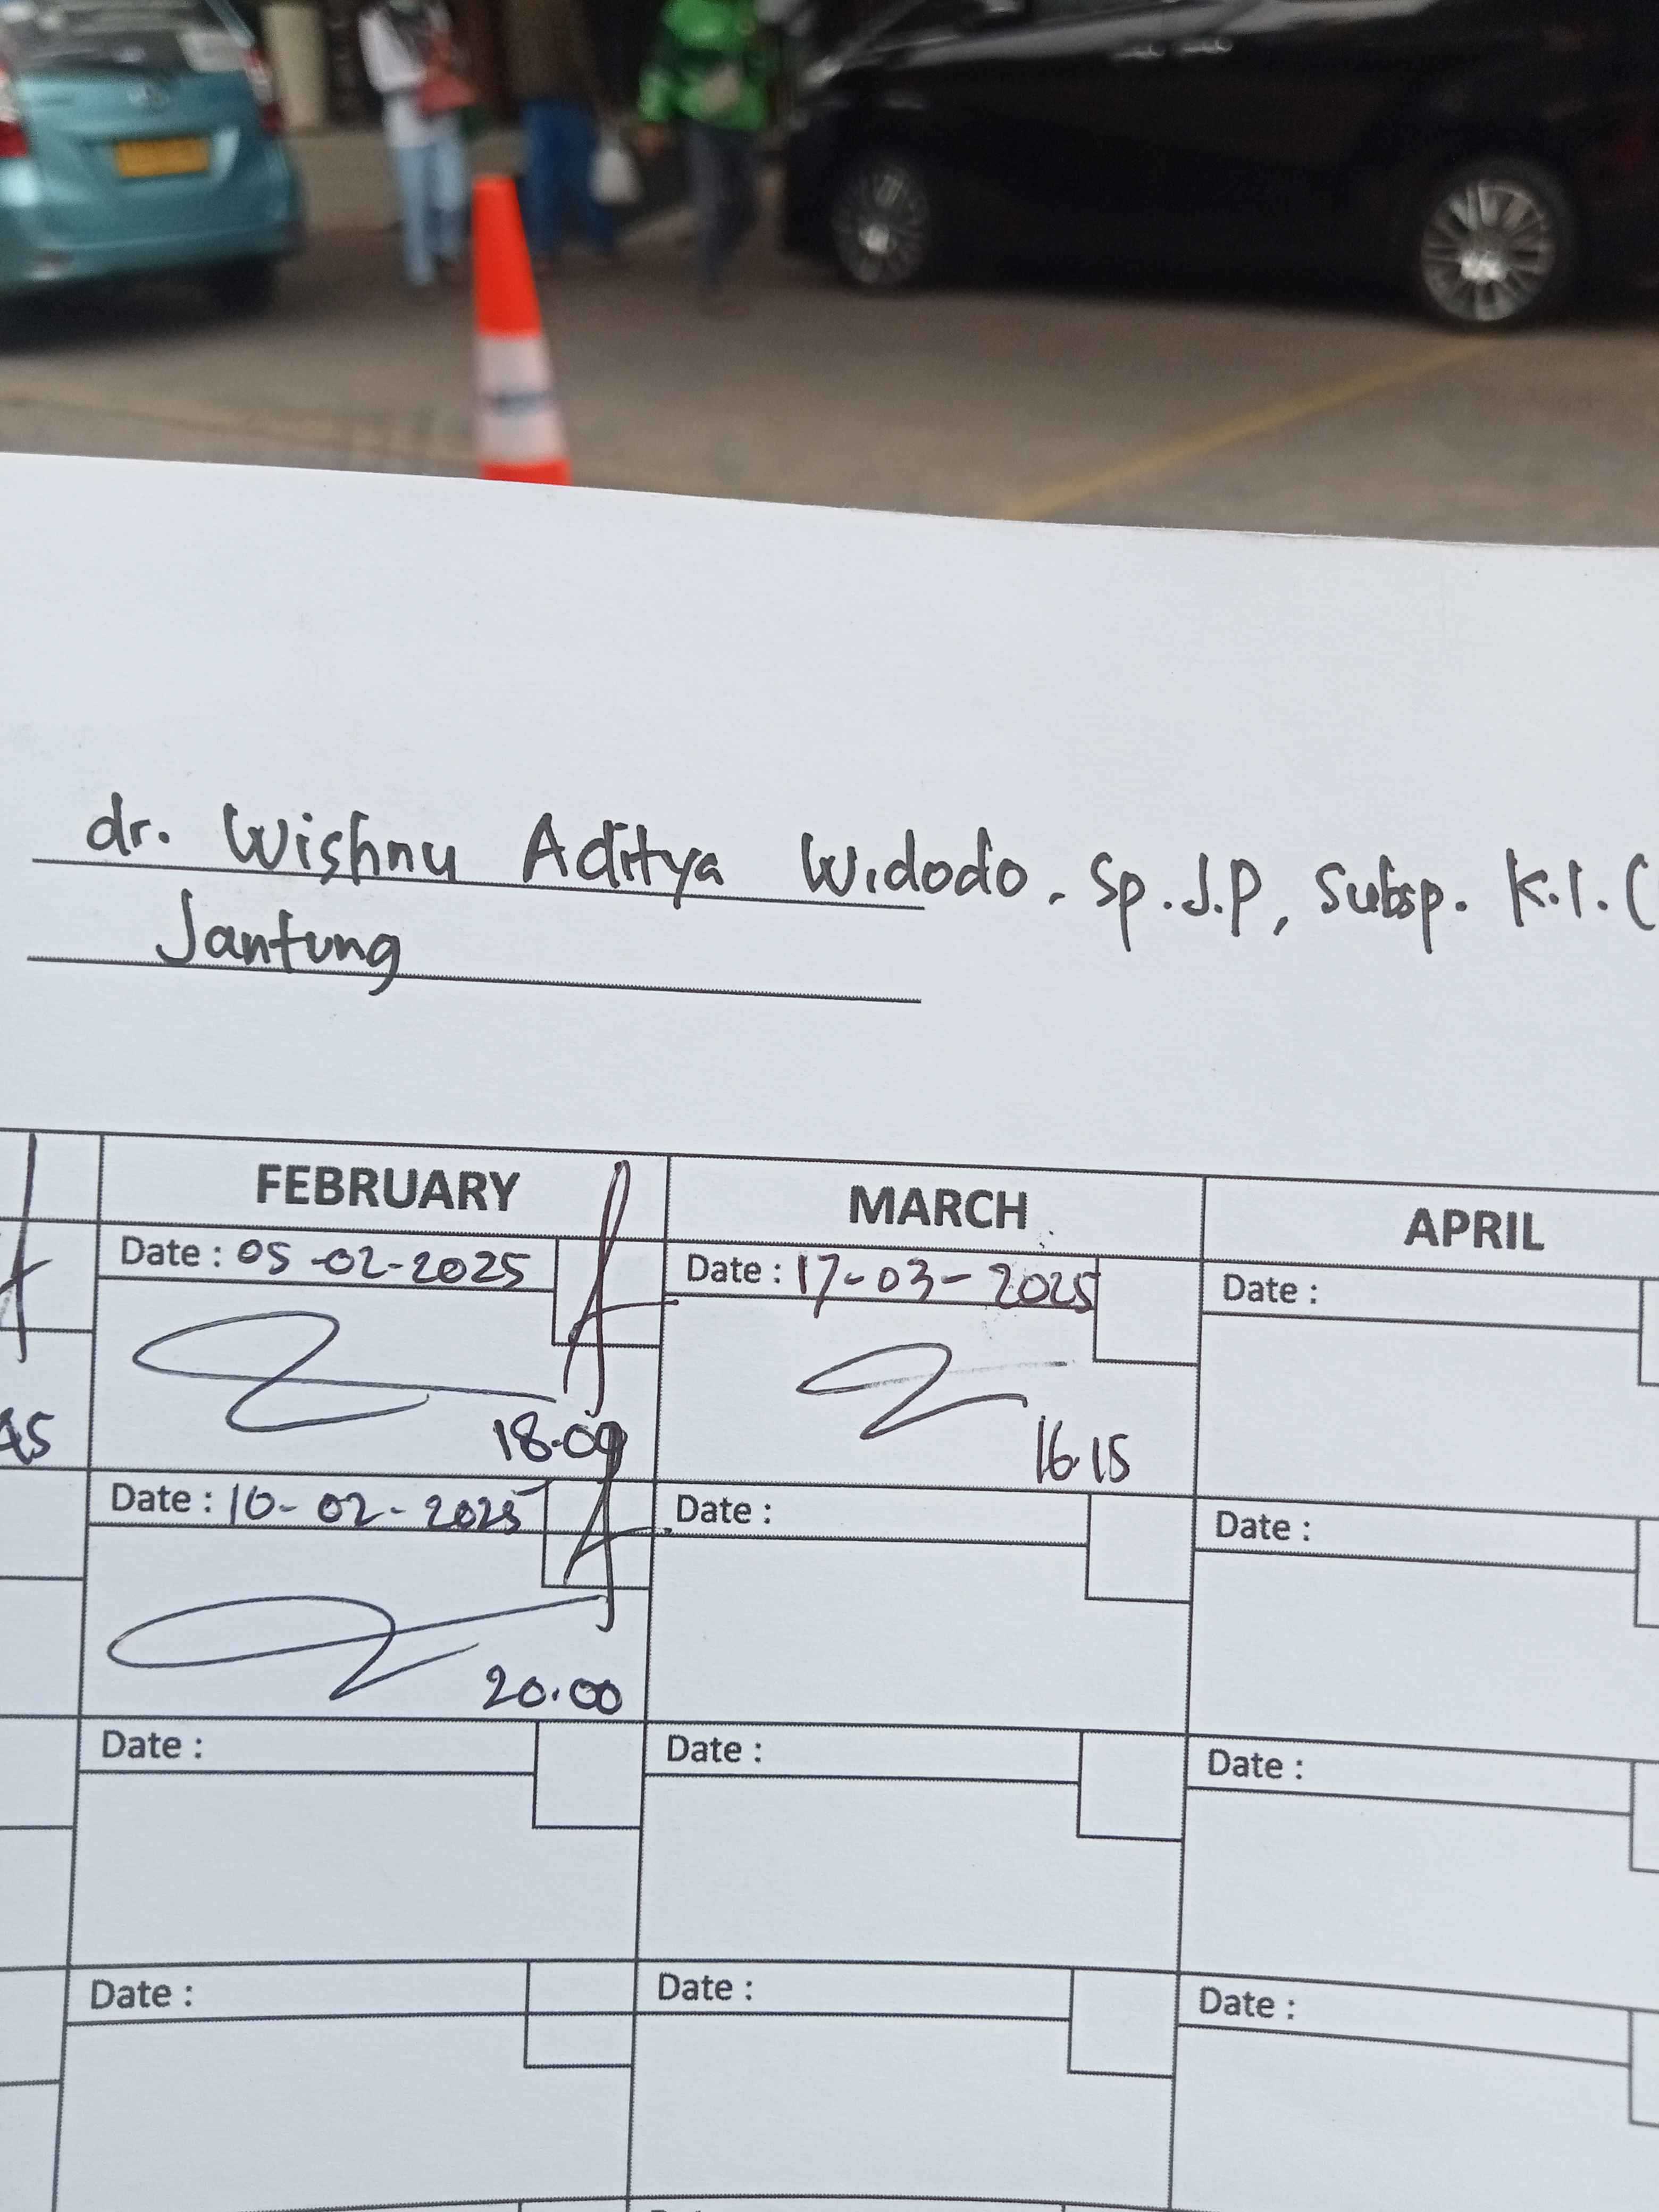 dr. Wishnu Aditya Widodo. Sp.J.P, Subsp. K.I.(
Jantung
FEBRUARY MARCH APRIL
Date : 05-02-2025 Date : 17-03-2025 Date :
45 18.09 16.15
Date : 10-02-2025 Date : Date :
20.00
Date : Date : Date :
Date : Date : Date :